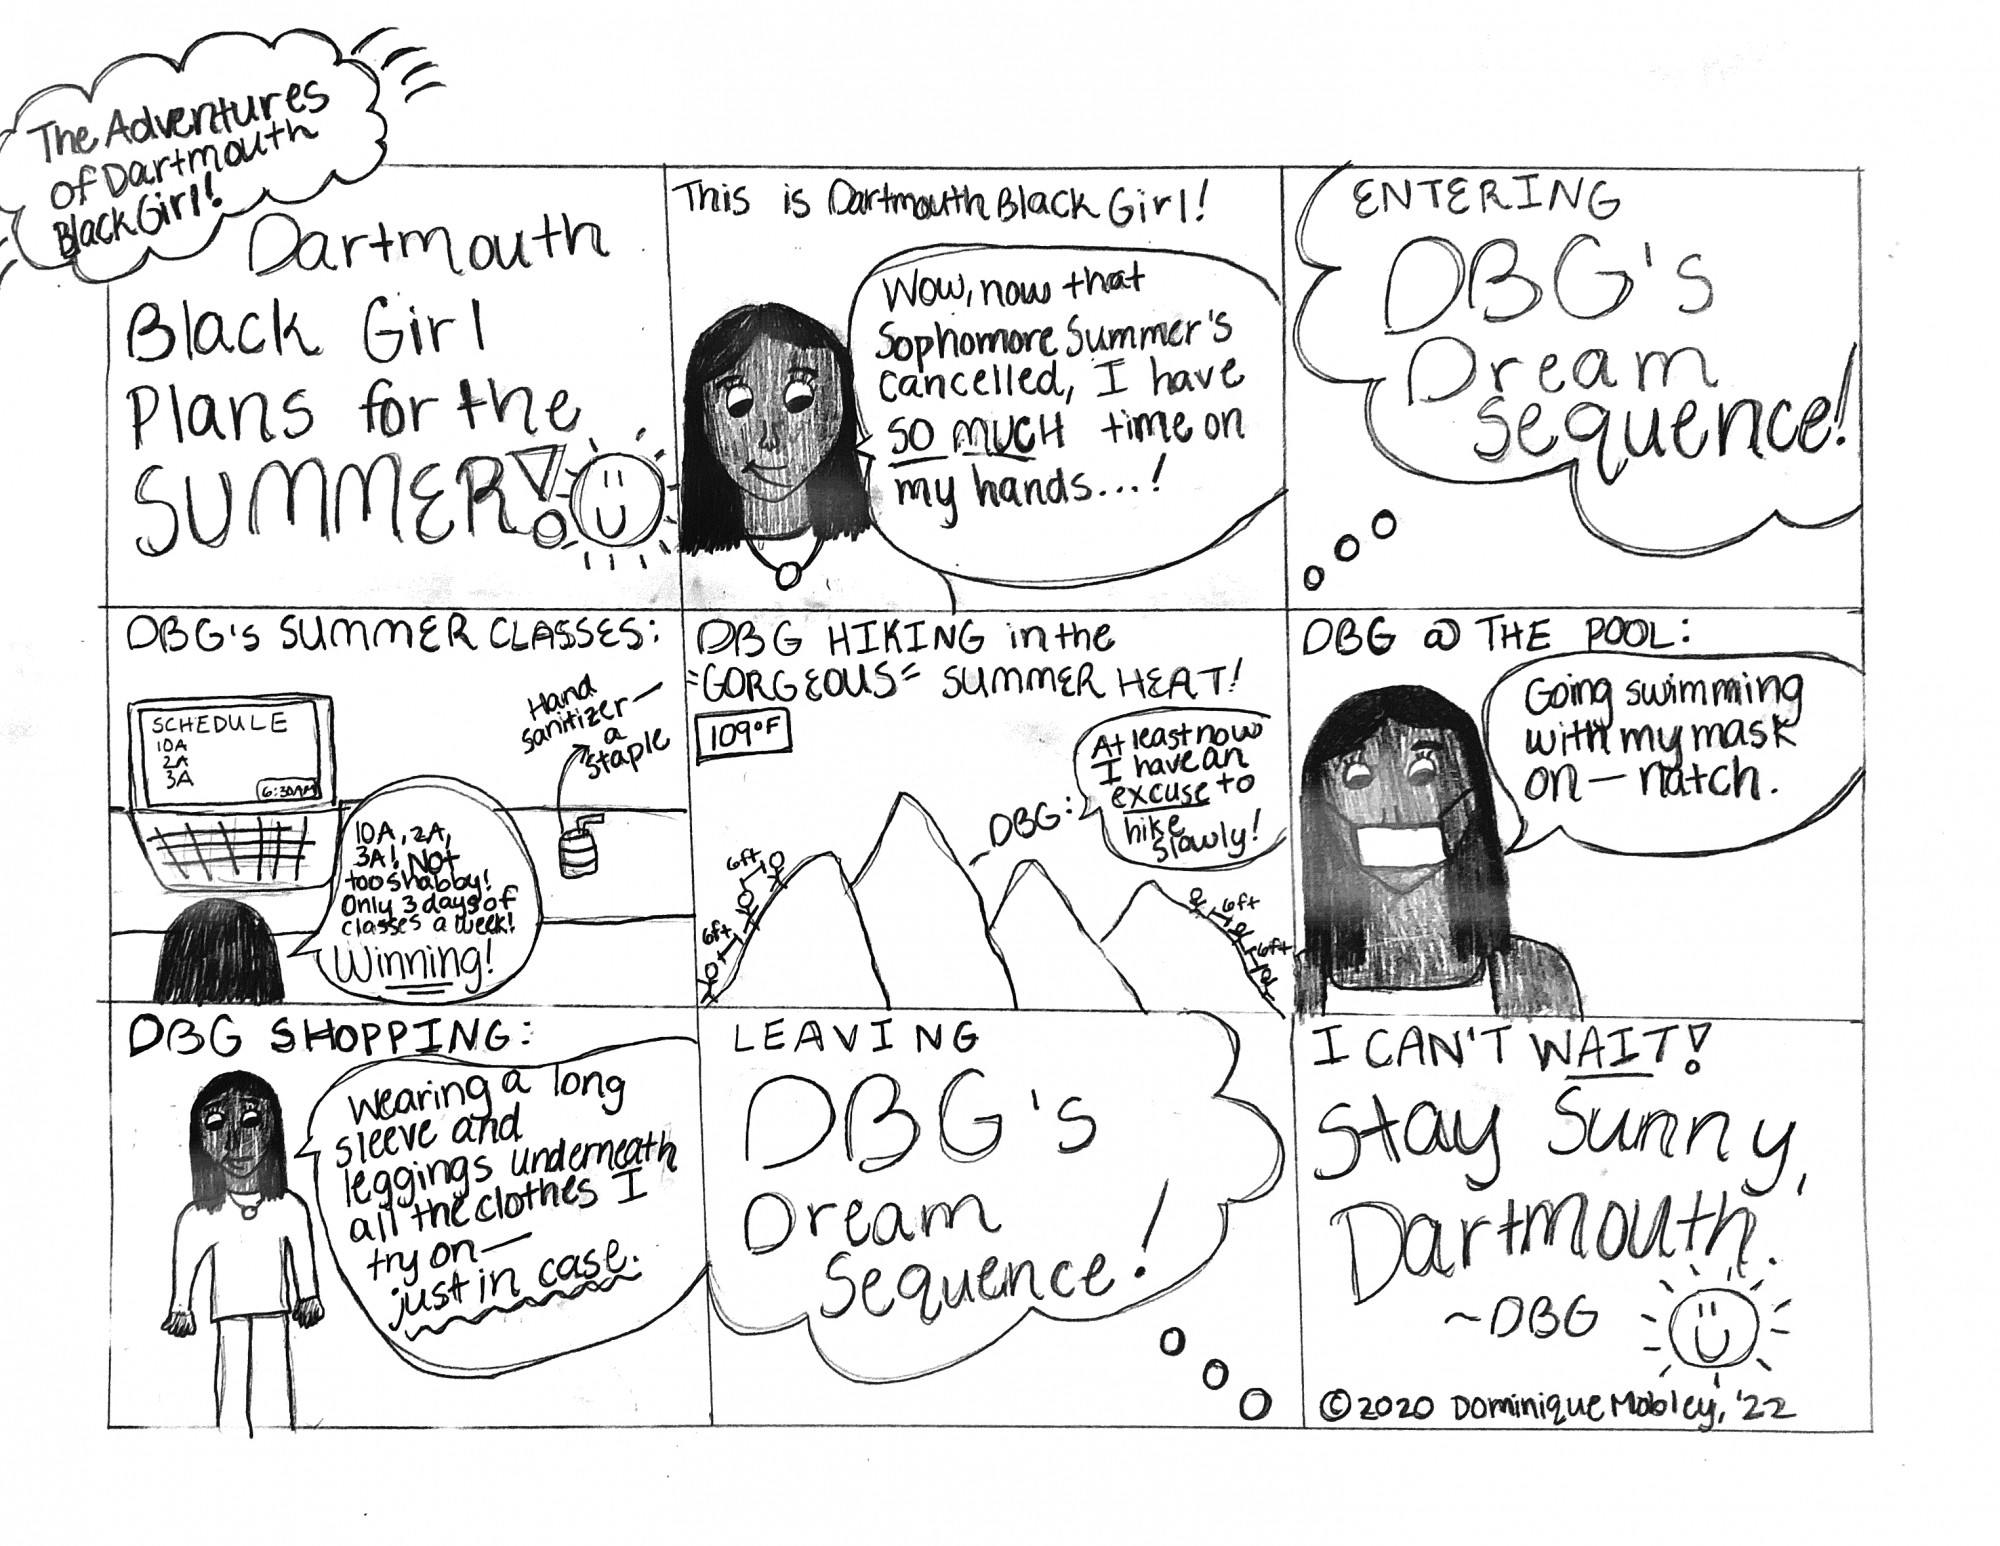 The Adventures
of Dartmouth
Black Girl!
Dartmouth
Black Girl
Plans for the
SUMMER!
This is Dartmouth Black Girl!
Wow, now that
Sophomore Summer's
cancelled, I have
SO MUCH time on
my hands...!
ENTERING
DBG's
Dream
sequence!
DBG's SUMMER CLASSES:
SCHEDULE
10A
2A
3A
6:30AM
Hand
sanitizer—
a
staple
10A, 2A,
3A! Not
too shabby!
Only 3 days of
classes a week!
Winning!
DBG HIKING in the
"GORGEOUS" SUMMER HEAT!
109°F
At least now
I have an
excuse to
hike
slowly!
DBG:
6ft
6ft
6ft
6ft
DBG @ THE POOL:
Going swimming
with my mask
on — natch.
DBG SHOPPING:
Wearing a long
sleeve and
leggings underneath
all the clothes I
try on—
just in case.
LEAVING
DBG's
Dream
Sequence!
I CAN'T WAIT!
Stay Sunny,
Dartmouth.
~DBG
©2020 Dominique Mobley, '22